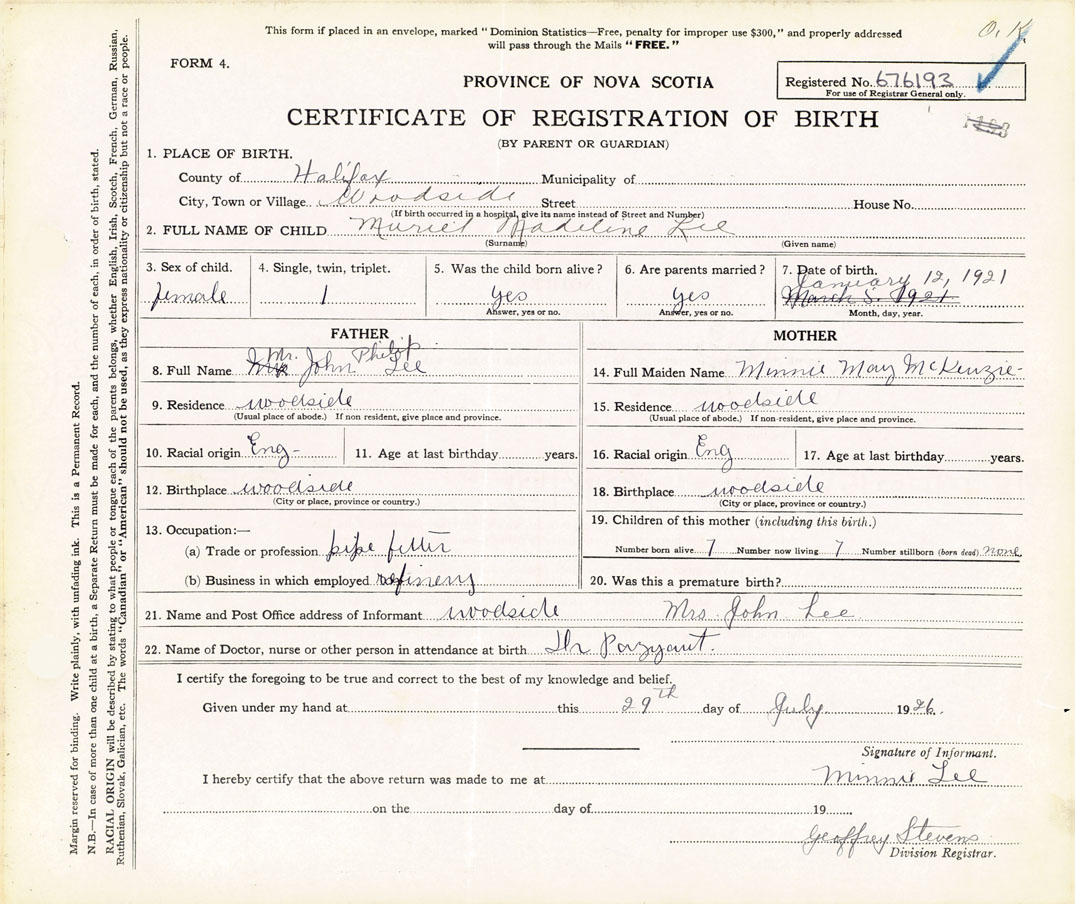 This form if placed in an envelope, marked "Dominion Statistics—Free, penalty for improper use $300," and properly addressed
will pass through the Mails "FREE."
O.K.
FORM 4.
PROVINCE OF NOVA SCOTIA
Registered No. 676193
For use of Registrar General only.
CERTIFICATE OF REGISTRATION OF BIRTH
(BY PARENT OR GUARDIAN)
1. PLACE OF BIRTH.
County of Halifax Municipality of
City, Town or Village Woodside Street House No.
(If birth occurred in a hospital, give its name instead of Street and Number)
2. FULL NAME OF CHILD Muriel Madeline Lee
(Surname) (Given name)
3. Sex of child. 4. Single, twin, triplet. 5. Was the child born alive? 6. Are parents married? 7. Date of birth.
January 12, 1921
female 1 yes yes March 5. 1921
Answer, yes or no. Answer, yes or no. Month, day, year.
FATHER MOTHER
8. Full Name Mr. John Philip Lee 14. Full Maiden Name Minnie May McKenzie-
9. Residence woodside 15. Residence woodside
(Usual place of abode.) If non resident, give place and province. (Usual place of abode.) If non-resident, give place and province.
10. Racial origin Eng- 11. Age at last birthday years. 16. Racial origin Eng 17. Age at last birthday years.
12. Birthplace woodside 18. Birthplace woodside
(City or place, province or country.) (City or place, province or country.)
13. Occupation:— 19. Children of this mother (including this birth.)
(a) Trade or profession pipe fitter Number born alive 7 Number now living 7 Number stillborn (born dead) none
(b) Business in which employed refinery 20. Was this a premature birth?
21. Name and Post Office address of Informant woodside Mrs. John Lee
22. Name of Doctor, nurse or other person in attendance at birth Dr
I certify the foregoing to be true and correct to the best of my knowledge and belief.
Given under my hand at this 29th day of July 1926.
Signature of Informant.
I hereby certify that the above return was made to me at Minnie Lee
on the day of 19
Geoffrey Stevens
Division Registrar.
Margin reserved for binding. Write plainly, with unfading ink. This is a Permanent Record.
N.B.—In case of more than one child at a birth, a Separate Return must be made for each, and the number of each, in order of birth, stated.
RACIAL ORIGIN will be described by stating to what people or tongue each of the parents belongs, whether English, Irish, Scotch, French, German, Russian,
Ruthenian, Slovak, Galician, etc. The words "Canadian" or "American" should not be used, as they express nationality or citizenship but not a race or people.